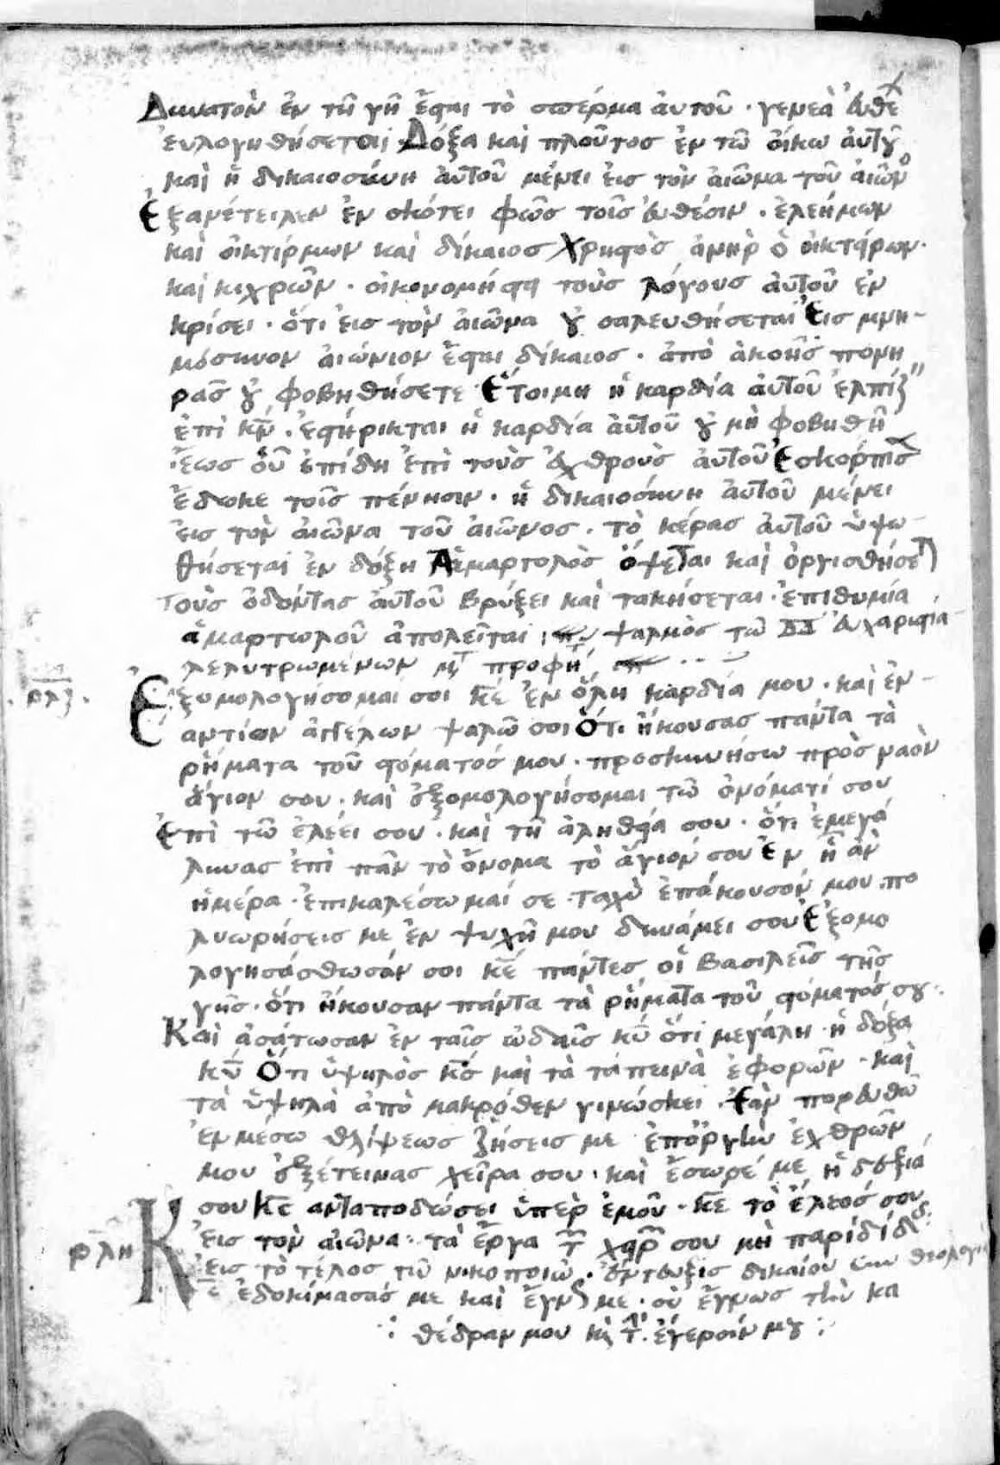 Δυνατὸν ἐν τῆ γῆ ἔσται τὸ σπέρμα ἀυτοῦ · γενεὰ ἐυθέ
ἐυλογηθήσεται Δόξα καὶ πλοῦτος ἐν τῶ ὀίκω ἀυτοῦ
καὶ ἡ δικαιοσύνη ἀυτοῦ μένει εἰς τὸν αἰῶνα τοῦ αἰῶνο
Ἐξανέτειλεν ἐν σκότει φῶς τοῖς ἐυθέσιν · ἐλεήμων
καὶ οἰκτίρμων καὶ δίκαιος Χρηστὸς ἀνὴρ ὁ οἰκτήρων ·
καὶ κιχρῶν · οἰκονομήση τοὺς λόγους ἀυτοῦ ἐν
κρίσει · ὅτι εἰς τὸν αἰῶνα οὐ σαλευθήσεται Εἰς μνη-
μόσυνον αἰώνιον ἔσται δίκαιος · ἀπὸ ἀκοῆς πονη
ρᾶς οὐ φοβηθήσετε Ἑτοιμη ἡ καρδία ἀυτοῦ ἐλπίζ
ἐπὶ κν · ἐστήρικται ἡ καρδία ἀυτοῦ οὐ μὴ φοβηθῆ
ἕως οὗ ἐπίδη ἐπὶ τοὺς ἐχθροὺς ἀυτοῦ Ἐσκόρπισ
ἔδωκε τοῖς πένησιν · ἡ δικαιοσύνη ἀυτοῦ μένει
εἰς τὸν αἰῶνα τοῦ αἰῶνος · τὸ κέρας ἀυτοῦ ὑψω-
θήσεται ἐν δόξη Ἁμαρτολὸς ὄψεται καὶ ὀργισθήσετ
τοὺς ὀδόντας ἀυτοῦ βρύξει καὶ τακήσεται · ἐπιθυμία
ἁμαρτωλοῦ ἀπολεῖται ψαλμὸς τῶ ΔΔ ἐυχαριστία
λελυτρωμένων προφή
ρλζ
Ἐξομολογήσομαι σοι κε ἐν ὅλη καρδία μου · καὶ ἐν-
αντίον ἀγγέλων ψαλῶ σοι Ὅτι ἤκουσας πάντα τὰ
ρήματα τοῦ στόματός μου · προσκυνήσω πρὸς ναὸν
ἅγιον σου · καὶ ἐξομολογήσομαι τῶ ὀνόματί σου
Ἐπὶ τῶ ἐλέει σου · καὶ τῆ ἀληθεία σου · ὅτι ἐμεγά
λυνας ἐπὶ πᾶν τὸ ὄνομα τὸ ἅγιόν σου Ἐν ἧ ἂν
ἡμέρα · ἐπικαλέσωμαί σε · ταχὺ ἐπάκουσόν μου · πο
λυωρήσεις με ἐν ψυχῆ μου δυνάμει σου Ἐξομο
λογησάσθωσάν σοι κε πάντες οἱ βασιλεῖς τῆς
γῆς · ὅτι ἤκουσαν πάντα τὰ ρήματα τοῦ στόματός σου ·
Καὶ ἀσάτωσαν ἐν ταῖς ὠδαῖς κυ ὅτι μεγάλη ἡ δόξα
κυ Ὅτι ὑψηλὸς κς καὶ τὰ ταπεινὰ ἐφορῶν · καὶ
τὰ ὑψηλὰ ἀπὸ μακρόθεν γινώσκει · Ἐὰν πορευθῶ
ἐν μέσω θλίψεως ζήσεις με ἐπ ὀργὴν ἐχθρῶν
μου ἐξέτεινας χεῖρα σου · καὶ ἔσωσέ με ἡ δεξιά
σου Κε ανταποδώσει ὑπὲρ ἐμοῦ · κε τὸ ἔλεός σου
εἰς τὸν αἰῶνα · τὰ ἔργα χειρ σου μὴ παρίδ
ρλη
Εἰς τὸ τέλος τῶ νικοποιῶ · ἔντευξις δικαίου
Κε ἐδοκίμασάς με καὶ ἔγν με · σὺ ἔγνως τὴν κα
θέδραν μου κὶ τ ἐγερσίν μου